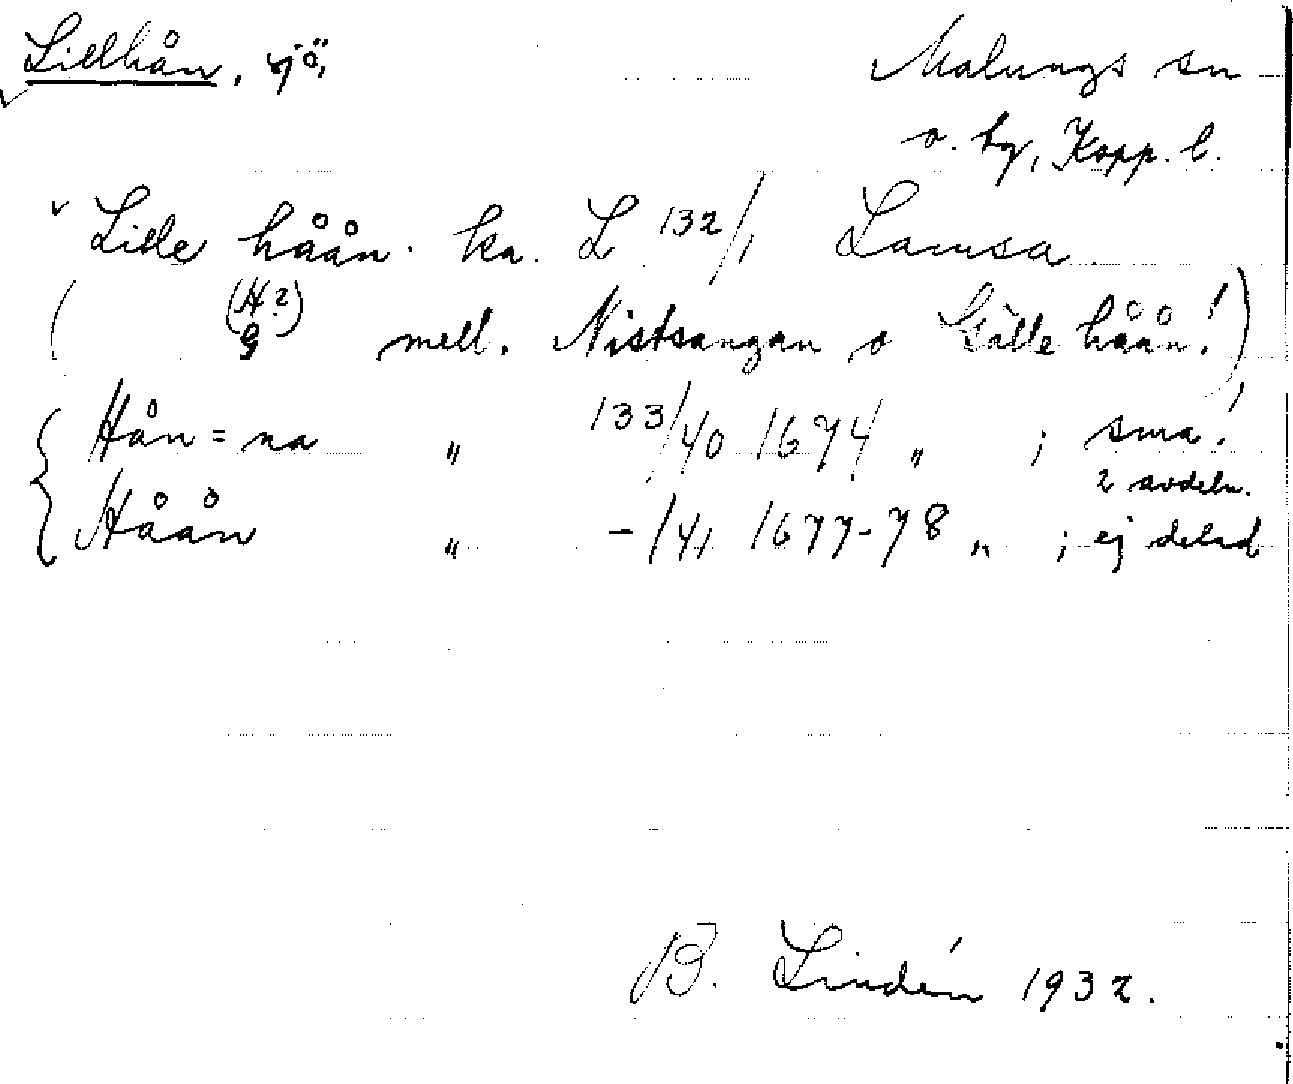 Lillhån, sjö,
Malungs sn
o. by, Kopp. l.
Lille håån. ka. L 132/1 Lamsa
(H?)
( g mell. Nistsangan o Gälle håån!)
Hån = na " 133/40 1674 " ; sma!
2 avdeln.
Håån " - /41 1677-78 " ; ej delad
B. Lindén 1932.